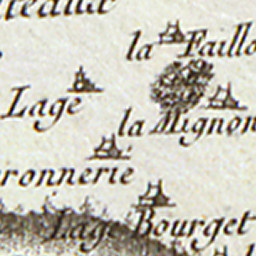 la Faillo
Lage
la Mignon
ronnerie
Lage Bourget